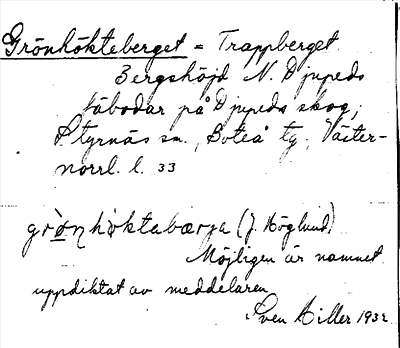 Grönhökteberget = Trappberget.
Bergshöjd N. Djupeds
fäbodar på Djupeds skog,
Styrnäs sn., Boteå tg., Väster-
norrl. l. 33
grò̱nhòktabærja (J. Höglund)
Möjligen är namnet
uppdiktat av meddelaren
Sven Hiller 1932